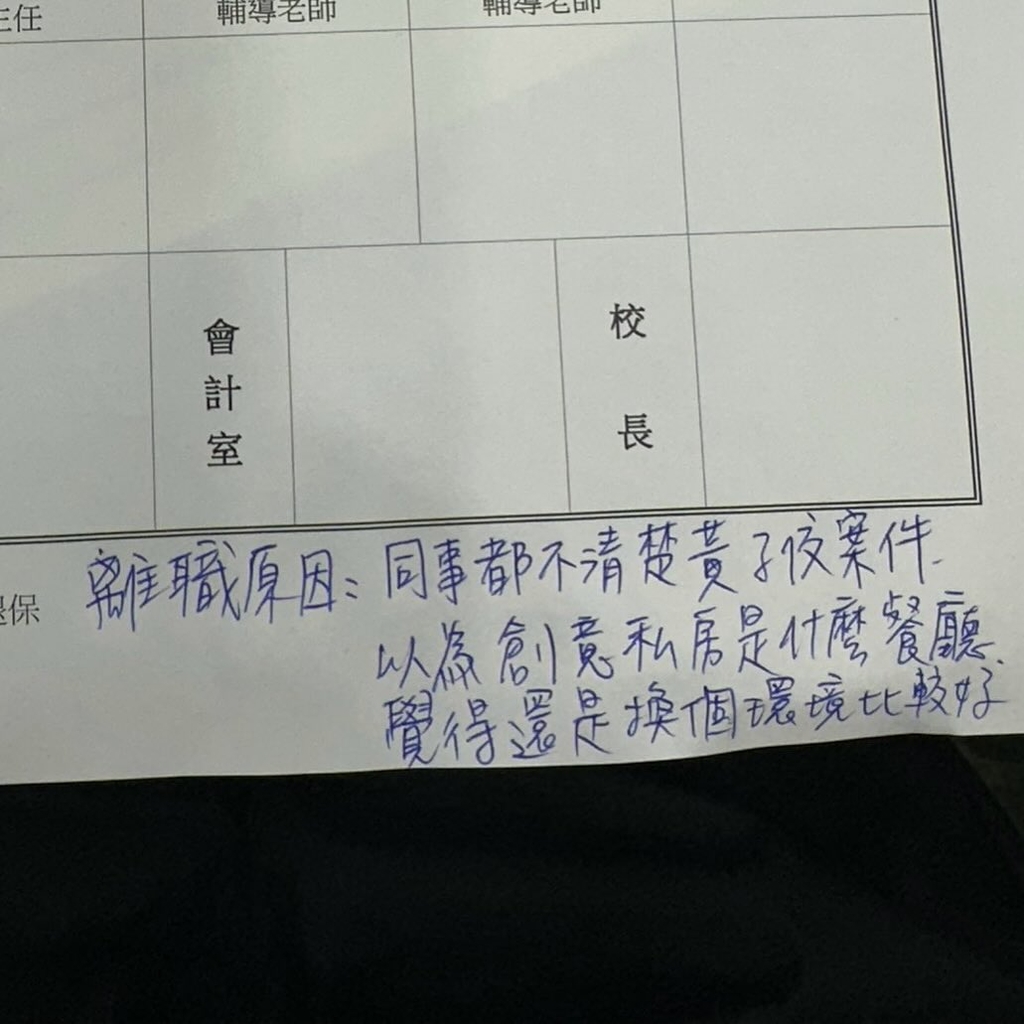 主任 輔導老師 輔導老師
會計室 校長
退保
離職原因：同事都不清楚黃子佼案件.
以為創意私房是什麼餐廳.
覺得還是換個環境比較好